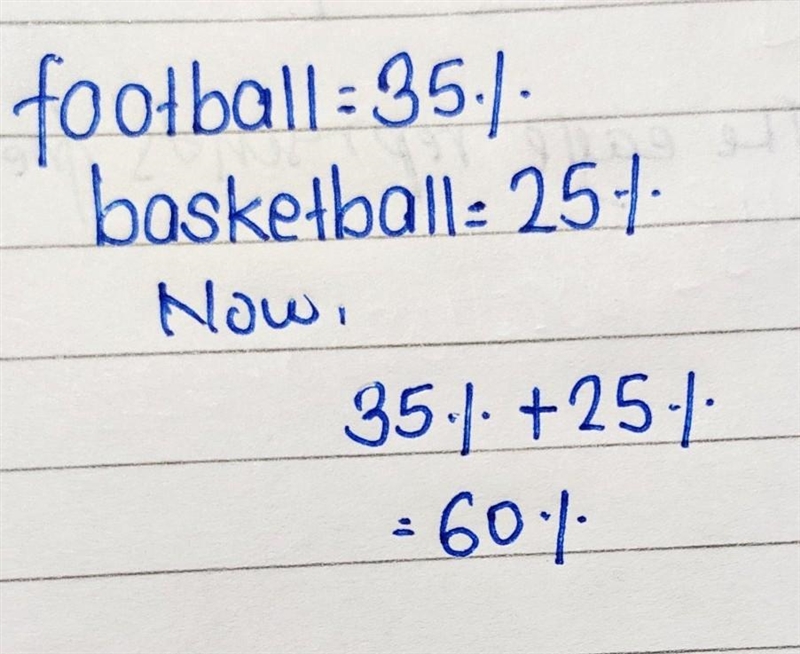 football = 35%
basketball = 25%
Now,
35% + 25%
= 60%